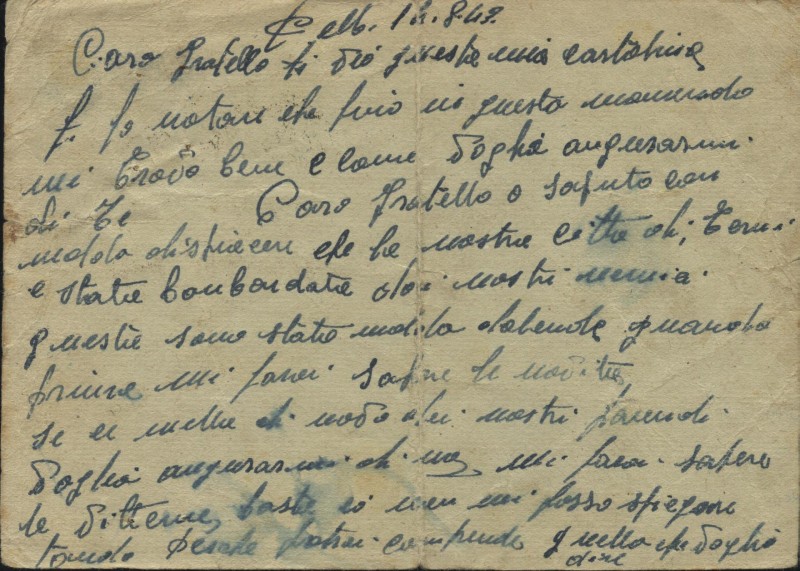 18.8.43
Caro fratello ti do questa mia cartolina
fo notare che fino in questo momendo
mi trovo bene e come voglio augurarmi
di te Caro fratello o saputo con
moldo dispiacere che la nostra città di Terni
e stata bombardata dai nostri nemici
queste sono state moldo dolende quando
prima mi farai sapere le novità
se ce nulla di novo dei nostri parendi
voglio augurarmi di no mi farai sapere
le vittime basta io non mi posso spiegare
tando perche potrai comprende quello che voglio
dire